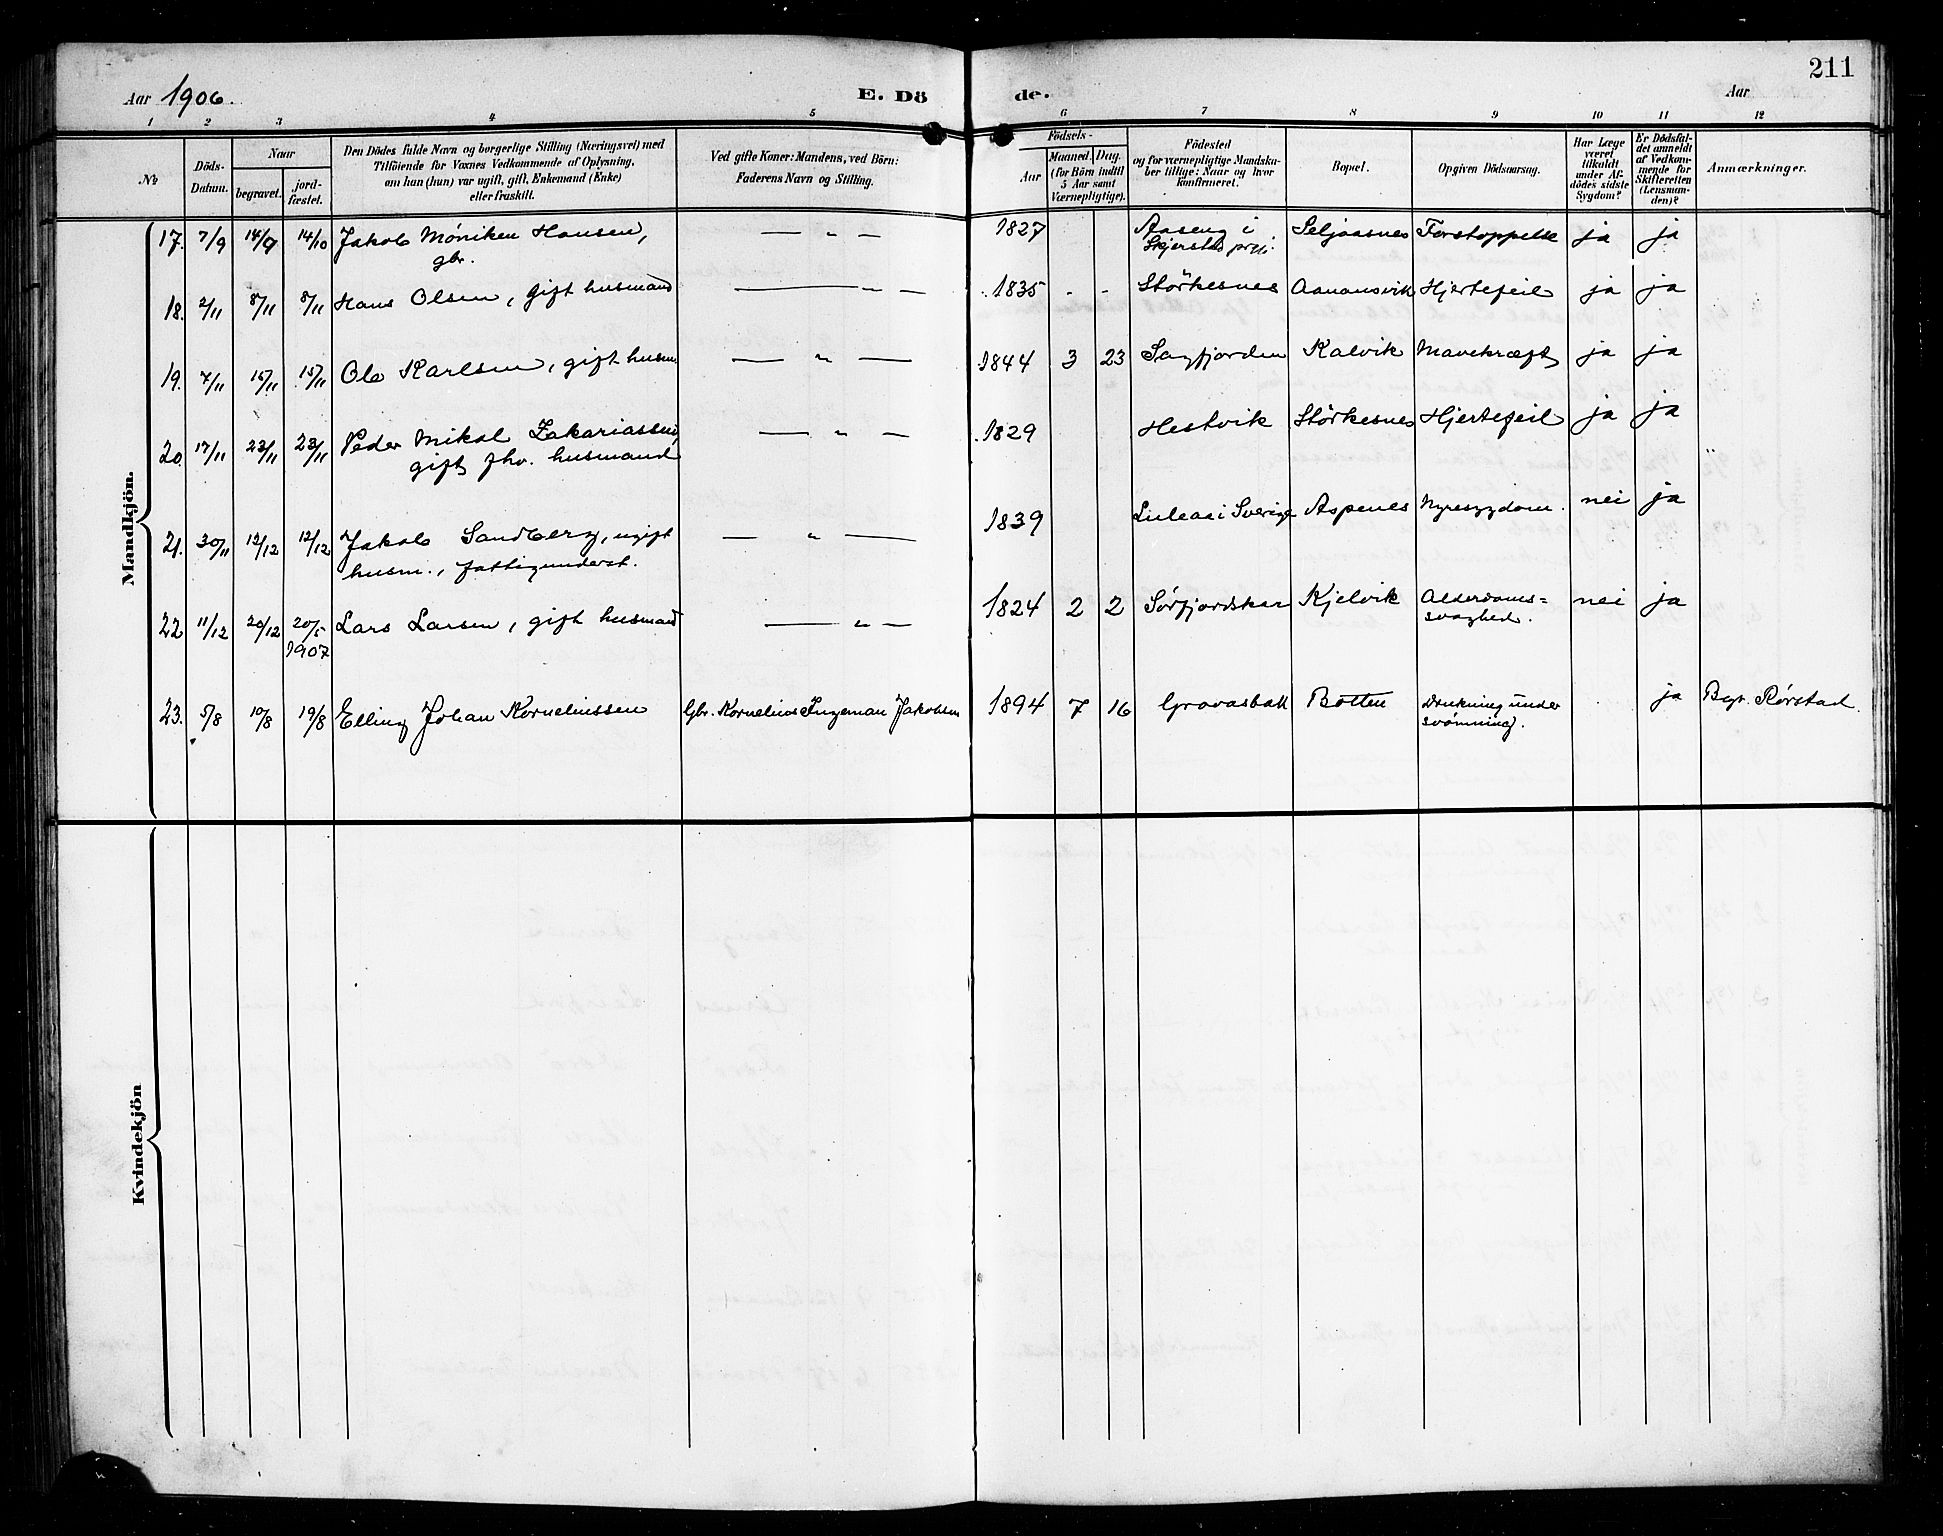 211
Aar 1906.
E. Dö de.
Aar
1 2 3 4 5 6 7 8 9 10 11 12
No
Döds-Datum.
Naar
begravet.
jord-fæstet.
Den Dödes fulde Navn og borgerlige Stilling (Næringsvei) med
Tilföiende for Voxnes Vedkommende af Oplysning,
om han (hun) var ugift, gift, Enkemand (Enke)
eller fraskilt.
Ved gifte Koner: Mandens, ved Börn:
Faderens Navn og Stilling.
Födsels-
Aar
Maaned. Dag.
(for Börn indtil
5 Aar samt
Værnepligtige).
Födested
og for værnepligtige Mandska-
ber tillige: Naar og hvor
konfirmeret.
Bopæl.
Opgiven Dödsaarsag.
Har Læge
været
tilkaldt
under Af-
dödes sidste
Sygdom?
Er Dödsfal-
det anmeldt
af Vedkom-
mende for
Skifteretten
(Lensman-
den)?
Anmærkninger.
Mandkjön.
17. 7/9 14/9 14/10 Jakob Møniken Hansen, — „ — 1827 Aaseng i Seljaasnes Forstoppelse ja ja
gbr. Skjerstad prgj.
18. 2/11 8/11 8/11 Hans Olsen, gift husmand — „ — 1835 - - Störkesnes Aanansvik Hjertefeil ja ja
19. 7/11 15/11 15/11 Ole Karlsen, gift husm. — „ — 1844 3 23 Sagfjorden Kalvik Mavekræft ja ja
20. 17/11 23/11 23/11 Peder Mikal Zakariassen, — „ — 1829 Hestvik Störkesnes Hjertefeil ja ja
gift, fhv. husmand
21. 30/11 12/12 12/12 Jakob Sandberg, ugift — „ — 1839 Luleaa i Sverige Aspenes Nyresygdom. nei ja
husm., fattigunderst.
22 11/12 20/12 20/5 Lars Larsen, gift husmand — „ — 1824 2 2 Sørfjordskar Kjelvik Alderdoms= nei ja
1907 svaghed.
23. 5/8 10/8 19/8 Elling Johan Korneliussen Gbr. Kornelius Ingeman Jakobsen 1894 7 16 Gravasbak Botten Drukning under ja Bgr. Rørstad.
svømning.
Kvindekjön